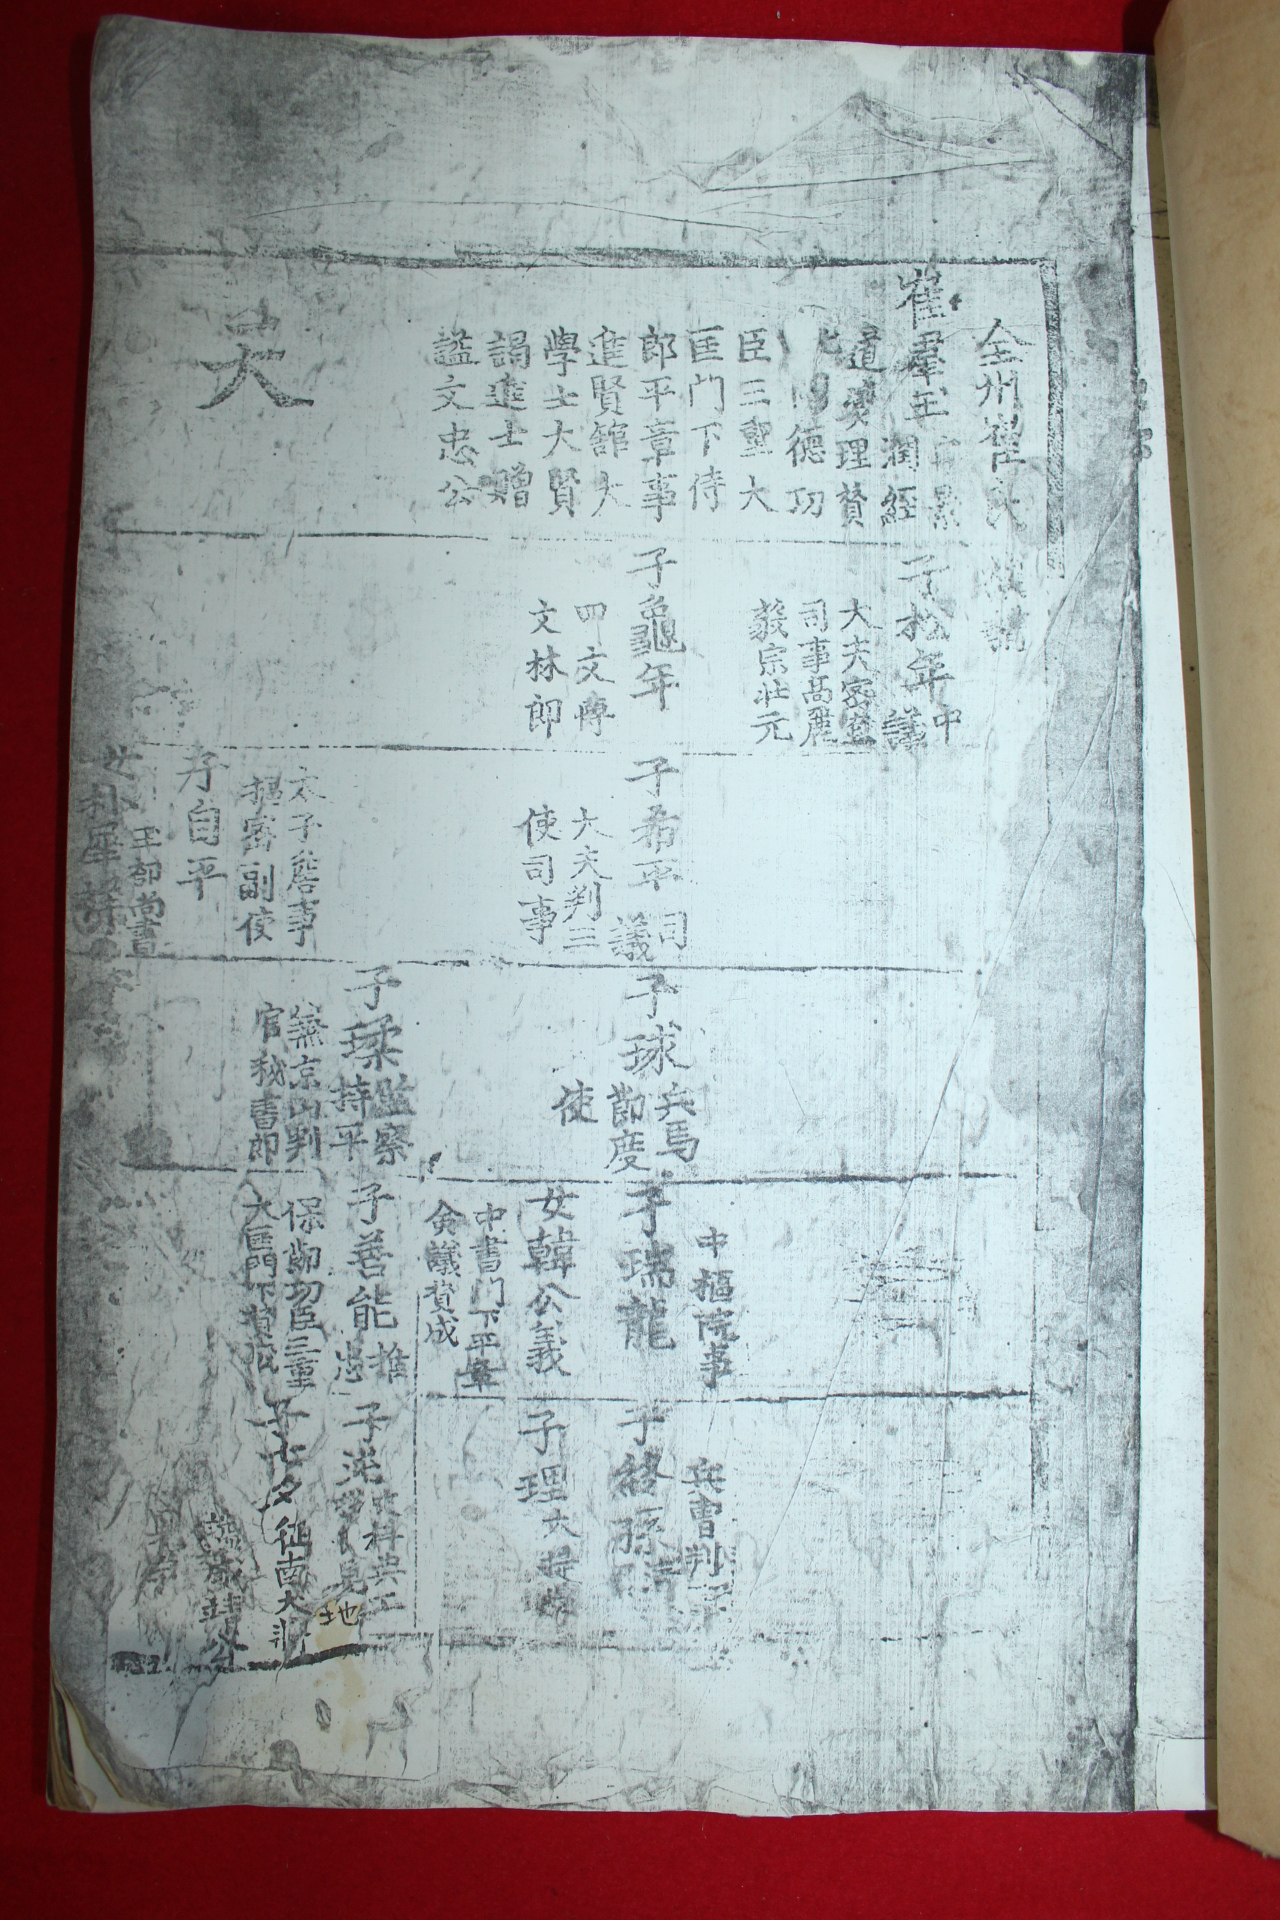 全州崔氏族譜
崔羣玉
潤經
道燮理贊
德功
臣三重大
匡門下侍
郎平章事
進賢館大
學士大賢
謁進士贈
諡文忠公
昊
子松年中議
大夫密直
司事高麗
毅宗壯元
子龜年
四文博
文林郎
子希平司議
大夫判三
使司事
太子詹事
樞密副使
子自平
工部尚書
女朴犀
子球兵馬節度
使
子瑈監察持平
兼京山判
官秘書郎
中樞院事
子瑞龍
女韓公義
中書門下平章
僉議贊成
子善能推忠
保節功臣三重
大匡門下贊成
兵曹判
子終孫
子理大提學
子沇文科典工
地
子七夕征南大將
諡襄靖公